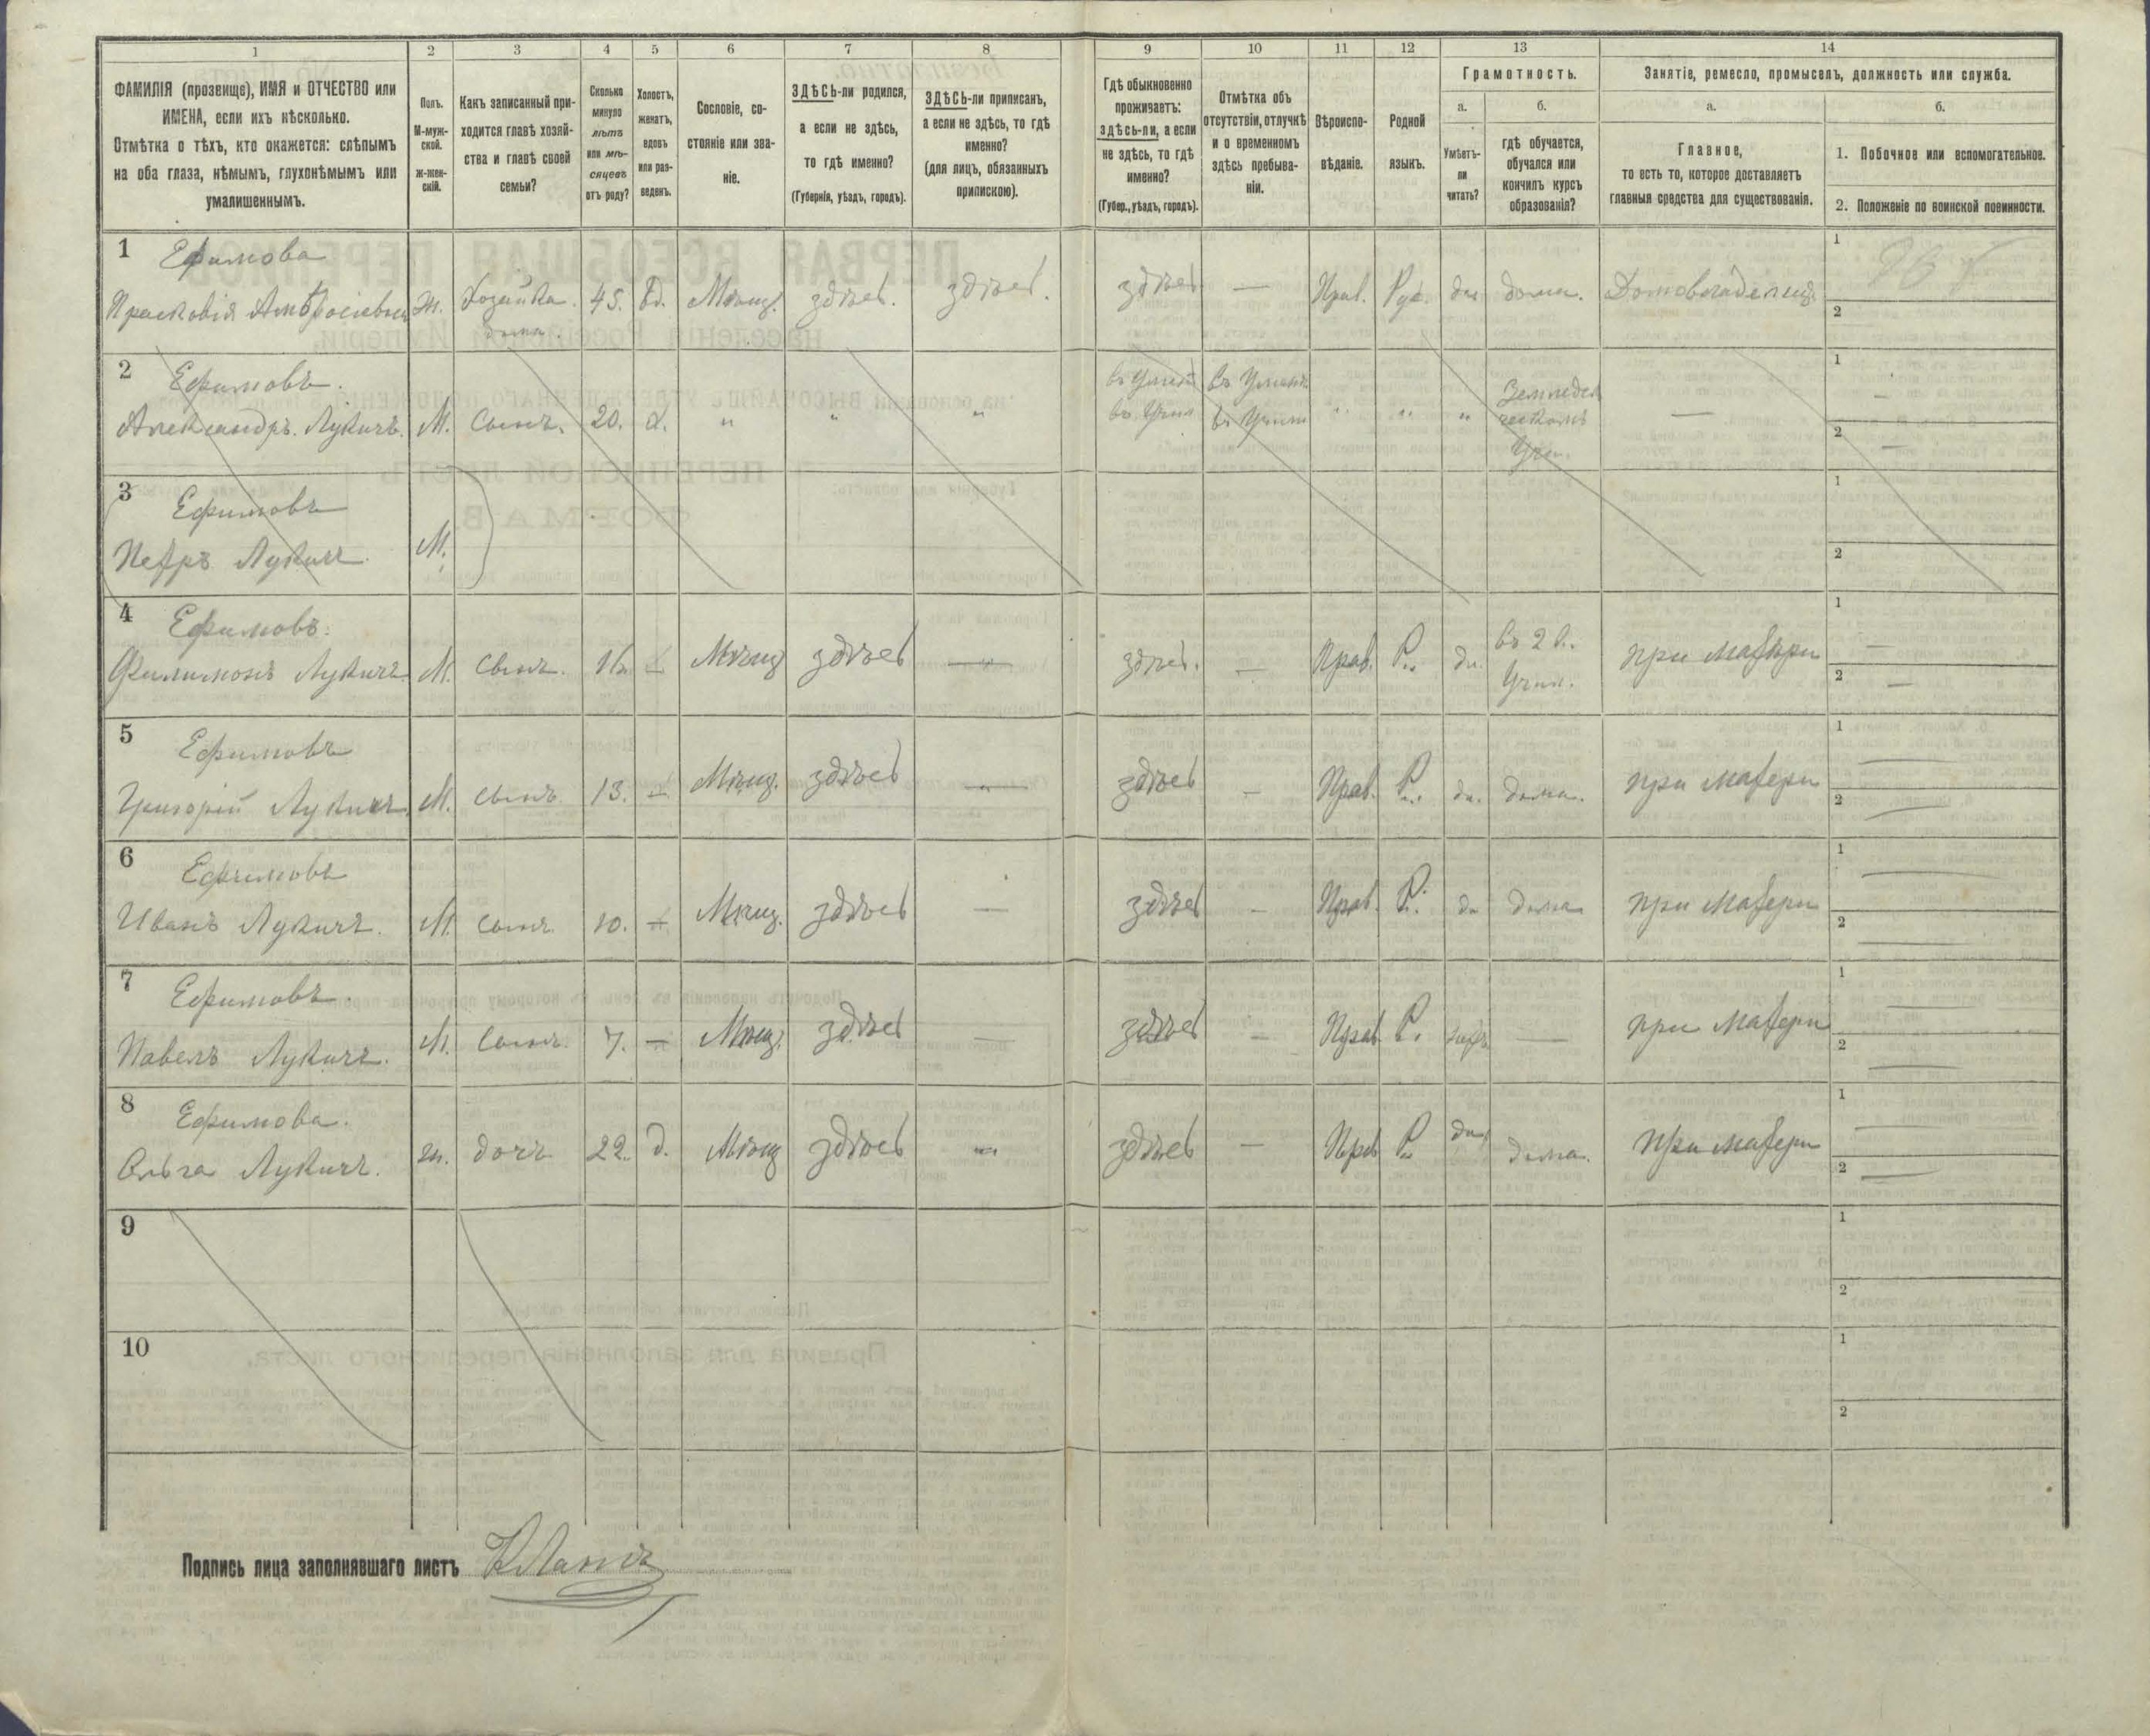 1 2 3 4 5 6 7 8 9 10 11 12 13 14
ФАМИЛІЯ (прозвище), ИМЯ и ОТЧЕСТВО или
ИМЕНА, если ихъ нѣсколько.
Отмѣтка о тѣхъ, кто окажется: слѣпымъ
на оба глаза, нѣмымъ, глухонѣмымъ или
умалишеннымъ.
Полъ.
М-муж-
ской.
ж-жен-
скій.
Какъ записанный при-
ходится главѣ хозяй-
ства и главѣ своей
семьи?
Сколько
минуло
лѣтъ
или мѣ-
сяцевъ
отъ роду?
Холостъ,
женатъ,
вдовъ
или раз-
веденъ.
Сословіе, со-
стояніе или зва-
ніе.
ЗДѢСЬ-ли родился,
а если не здѣсь,
то гдѣ именно?
(Губернія, уѣздъ, городъ).
ЗДѢСЬ-ли приписанъ,
а если не здѣсь, то гдѣ
именно?
(для лицъ, обязанныхъ
припискою).
Гдѣ обыкновенно
проживаетъ:
здѣсь-ли, а если
не здѣсь, то гдѣ
именно?
(Губер., уѣздъ, городъ).
Отмѣтка объ
отсутствіи, отлучкѣ
и о временномъ
здѣсь пребыва-
ніи.
Вѣроиспо-
вѣданіе.
Родной
языкъ.
Грамотность.
а.
Умѣетъ-
ли
читать?
б.
гдѣ обучается,
обучался или
кончилъ курсъ
образованія?
Занятіе, ремесло, промыселъ, должность или служба.
а.
Главное,
то есть то, которое доставляетъ
главныя средства для существованія.
б.
1. Побочное или вспомогательное.
2. Положеніе по воинской повинности.
1 Ефимова
Прасковія Амвросіевна ж. Хозяйка 45. Вд. Мѣщ. здѣсь. здѣсь. здѣсь — Прав. Рус. да дома. Домовладелица 1
дома 2
2 Ефимовъ.
Александръ Лукичъ. М. сынъ. 20. х. " " " " " " Земледел —
Учил.
1 —
2 —
3 Ефимовъ
Петръ Лукичъ М.
1
2
4 Ефимовъ.
Филимонъ Лукичъ М. сынъ. 16. Мѣщ здѣсь — здѣсь. — Прав. Р. да. въ 2 к. при матери
Учил.
1 —
2 —
5 Ефимовъ
Григорій Лукичъ М. сынъ 13. Мѣщ. здѣсь — здѣсь — Прав. Р. да. дома. при матери
1 —
2 —
6 Ефимовъ
Иванъ Лукичъ. М. сынъ. 10. Мѣщ. здѣсь — здѣсь — Прав. Р. да дома при матери
1 —
2 —
7 Ефимовъ.
Павелъ Лукичъ. М. сынъ. 7. — Мѣщ. здѣсь — здѣсь — Прав Р. — при матери
1 —
2 —
8 Ефимова.
Ольга Лукич. ж. дочь 22. д. Мѣщ здѣсь — здѣсь — Прав Р. да дома. при матери
1 —
2 —
9
1
2
10
1
2
Подпись лица заполнявшаго листъ